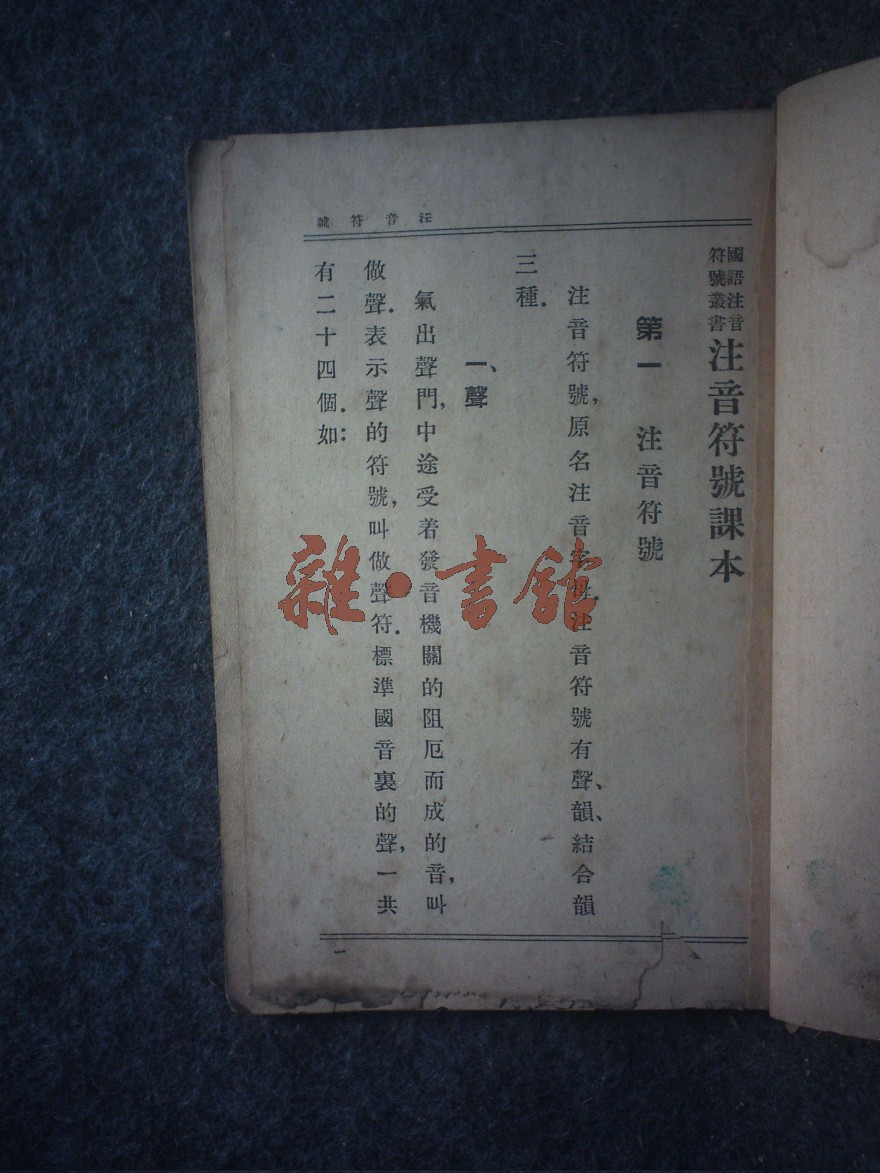 注音符號
國語注音
符號叢書
注音符號課本
第一　注音符號
注音符號,原名注音字母.注音符號有聲、韻、結合韻
三種.
一、聲
氣出聲門,中途受着發音機關的阻厄而成的音,叫
做聲.表示聲的符號,叫做聲符.標準國音裏的聲,一共
有二十四個.如:
一
雜·書館